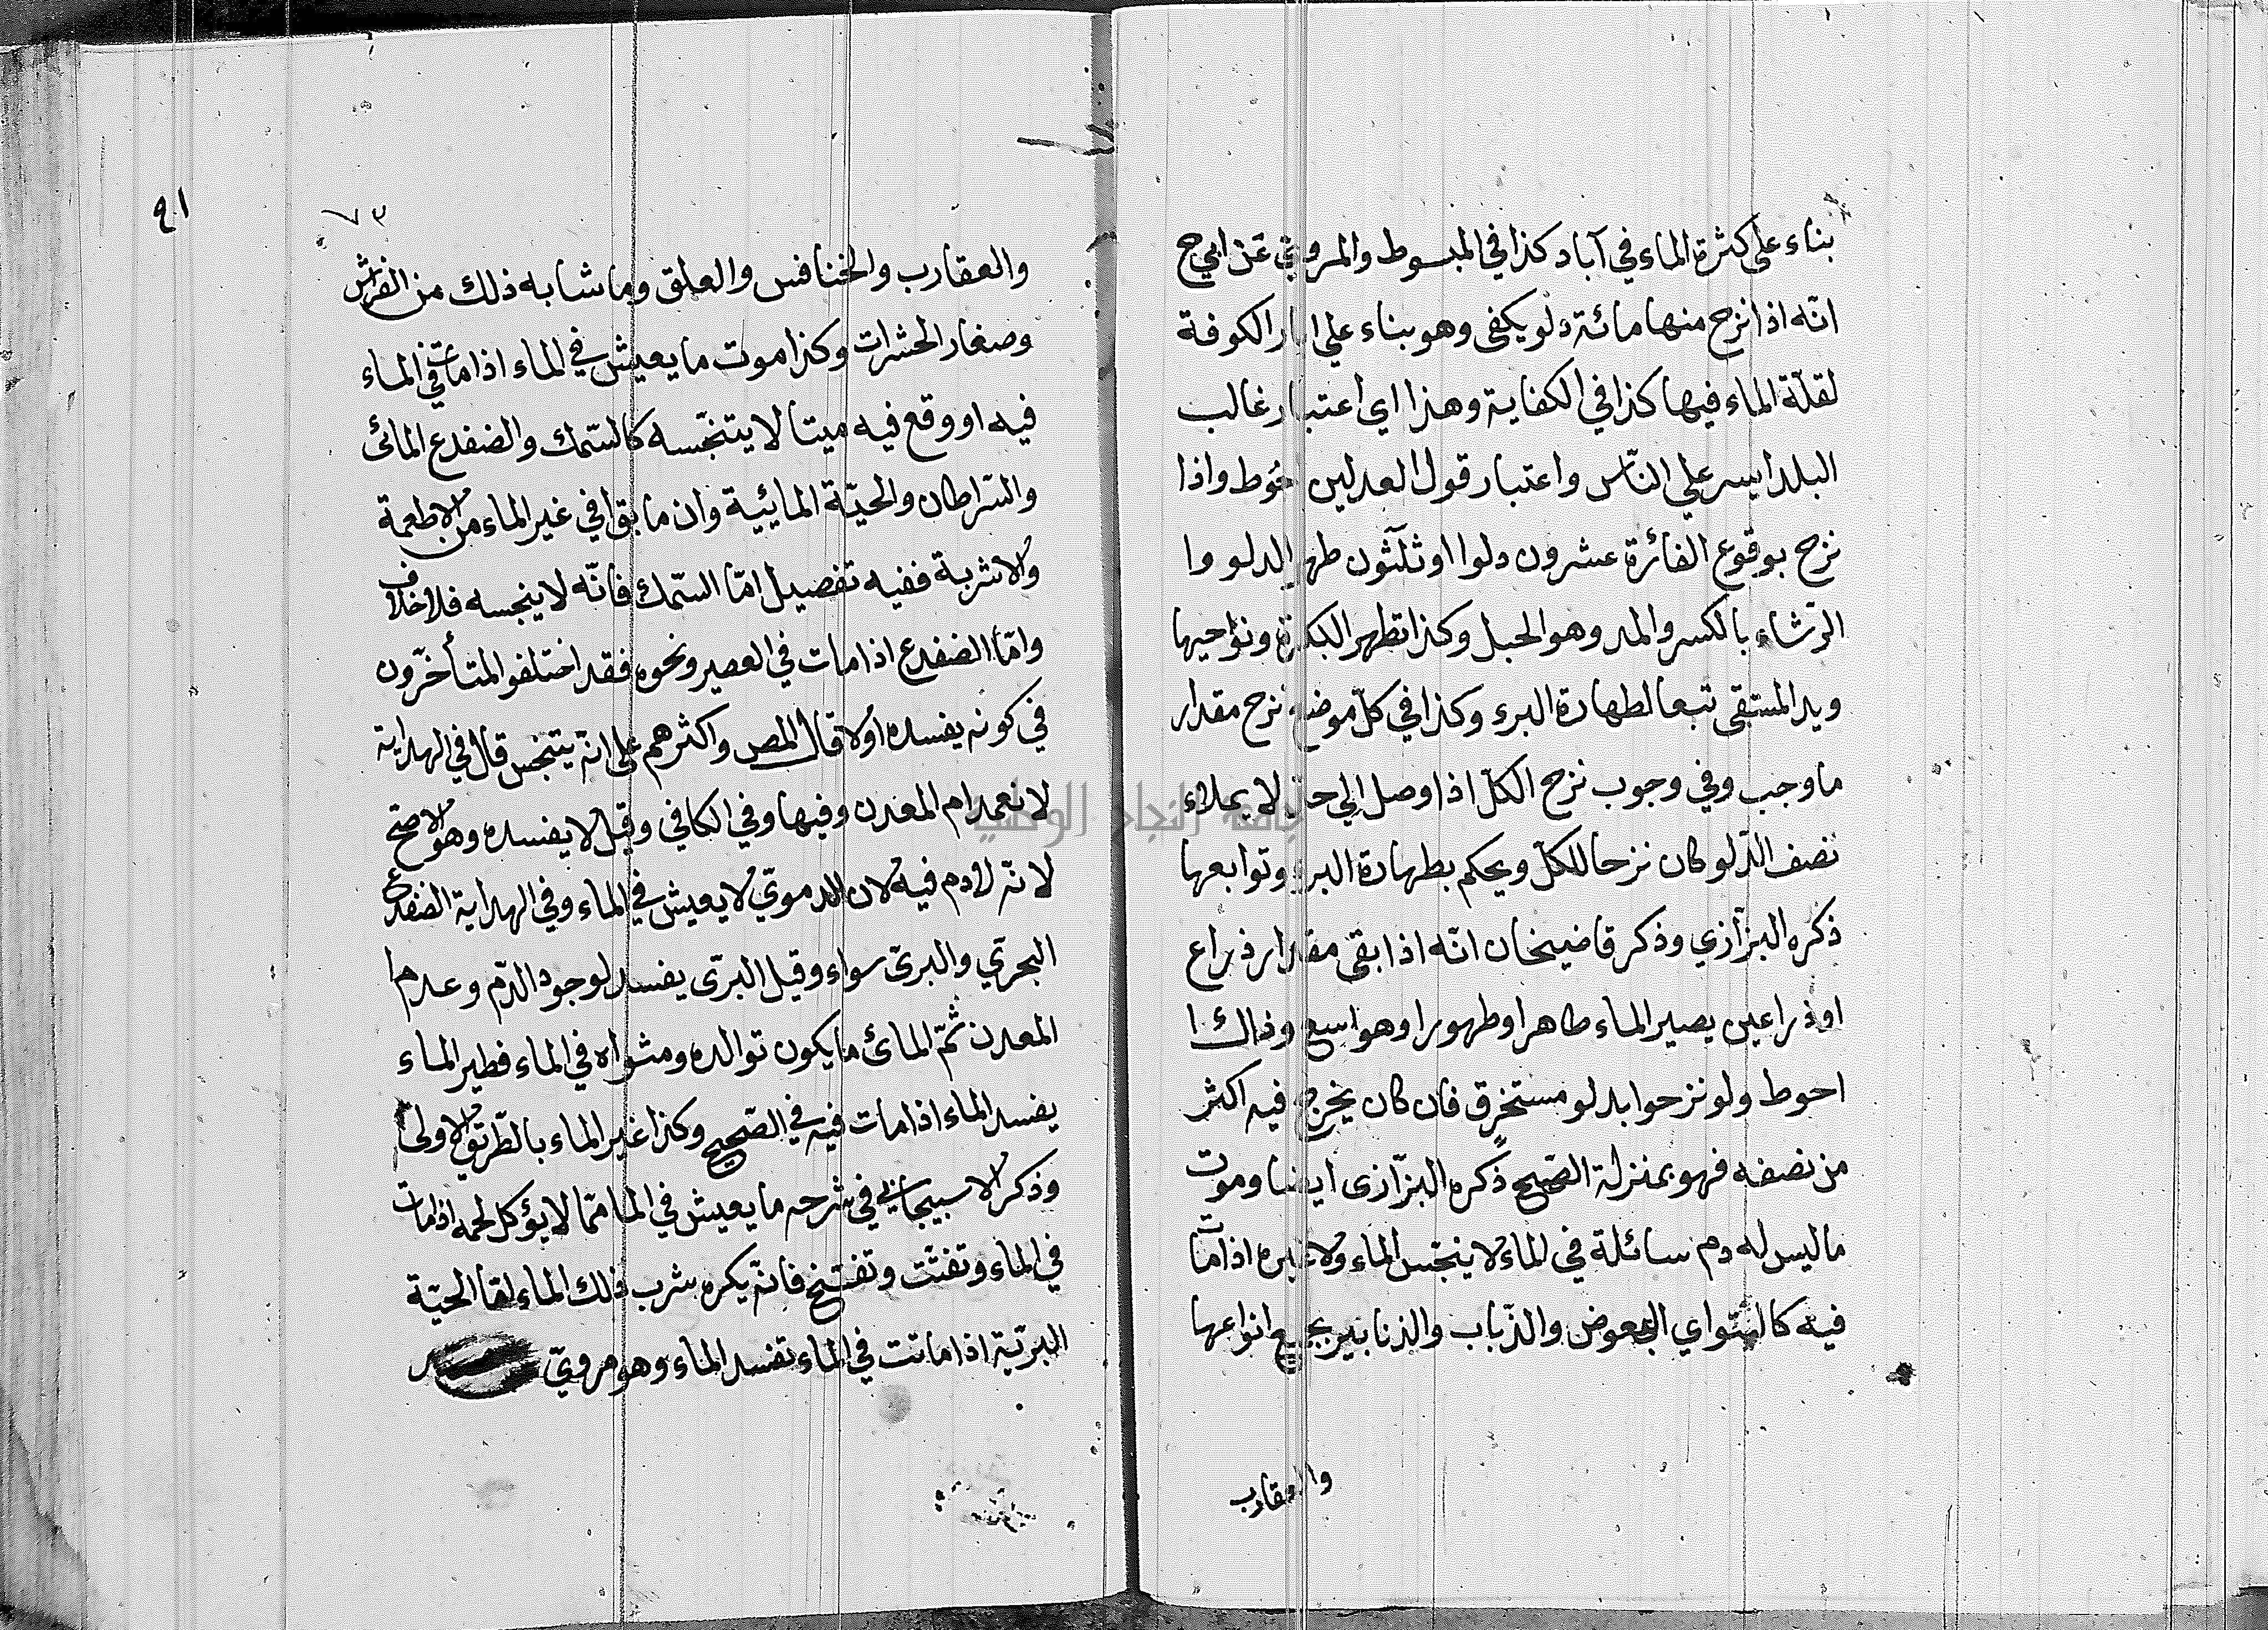 بناء على كثرة الماء في آباد كذا في المبسوط والمروي عن ابي ح
انّه اذا نزح منها مائة دلو يكفى وهو بناء علي ابار الكوفة
لقلّة الماء فيها كذا في الكفاية وهذا اي اعتبار غالب
البلد ايسر علي النّاس واعتبار قول العدلين احوط واذا
نزح بوقوع الفائرة عشرون دلوا او ثلثون طهر الدلو وا
الرّشاء بالكسر والمد وهو الحبل وكذا تطهر البكرة ونواحيها
ويد المستقى تبعا لطهارة البرء وكذا في كلّ موضع نزح مقدار
ما وجب وفي وجوب نزح الكلّ اذا وصل الي حد لا يملاء
نصف الدّلو كان نزحا للكلّ ويحكم بطهارة البرء وتوابعها
ذكره البزّازي وذكر قاضيخان انّه اذا بقى مقدار ذراع
او ذراعين يصير الماء طاهرا وطهورا وهو اسع وذاك ا
احوط ولو نزحوا بدلو مستخرق فان كان يخرج فيه اكثر
من نصفه فهو بمنزلة الصّحيح ذكره البزّازى ايضا وموت
ما ليس له دم سائلة في الماء لا ينجّس الماء ولا غيره اذا مات
فيه كالبقّ اي البعوض والذّباب والزنابير بجميع انواعها
والعقارب
٩١
٧٣
والعقارب والخنافس والعلق وما شابه ذلك من الفراش
وصغار الحشرات وكذا موت ما يعيش في الماء اذا مات في الماء
فيه او وقع فيه ميتا لا يتنجّسه كالسّمك والضفدع المائى
والسّراطان والحيّة المائيية وان ما بقى في غير الماء من الاطعمة
والاشربة ففيه تفصيل امّا السّمك فانّه لا ينجسه فلا خلاف
وامّا الضفدع اذا مات في العصير ونحوه فقد اختلفو المتأخرّون
في كونه يفسده او لا قال المص واكثرهم على انّه يتنجس قال في الهداية
لانعدام المعدن وفيها وفي الكافي وقيل لا يفسده وهو الاصحّ
لانّه لا دم فيه لان الدمويّ لا يعيش في الماء وفي الهداية الضفدع
البحرّي والبرىّ سواء وقيل البرّى يفسد لوجود الدّم وعدم ا
المعدن ثمّ المائ ما يكون توالده ومثواه في الماء فطير الماء
يفسد الماء اذا مات فيه في الصّحيح وكذا غير الماء بالطّريق الاولى
وذكر الاسبيجابي في شرحه ما يعيش في الما ممّا لا يؤكل لحمه اذا مات
في الماء وتفتّت وتفسّخ فانّه يكره شرب ذلك الماء لقا الحيّة
البرّيّة اذا ماتت في الماء تفسد الماء وهو مرويّ
جامعة النجاح الوطنية